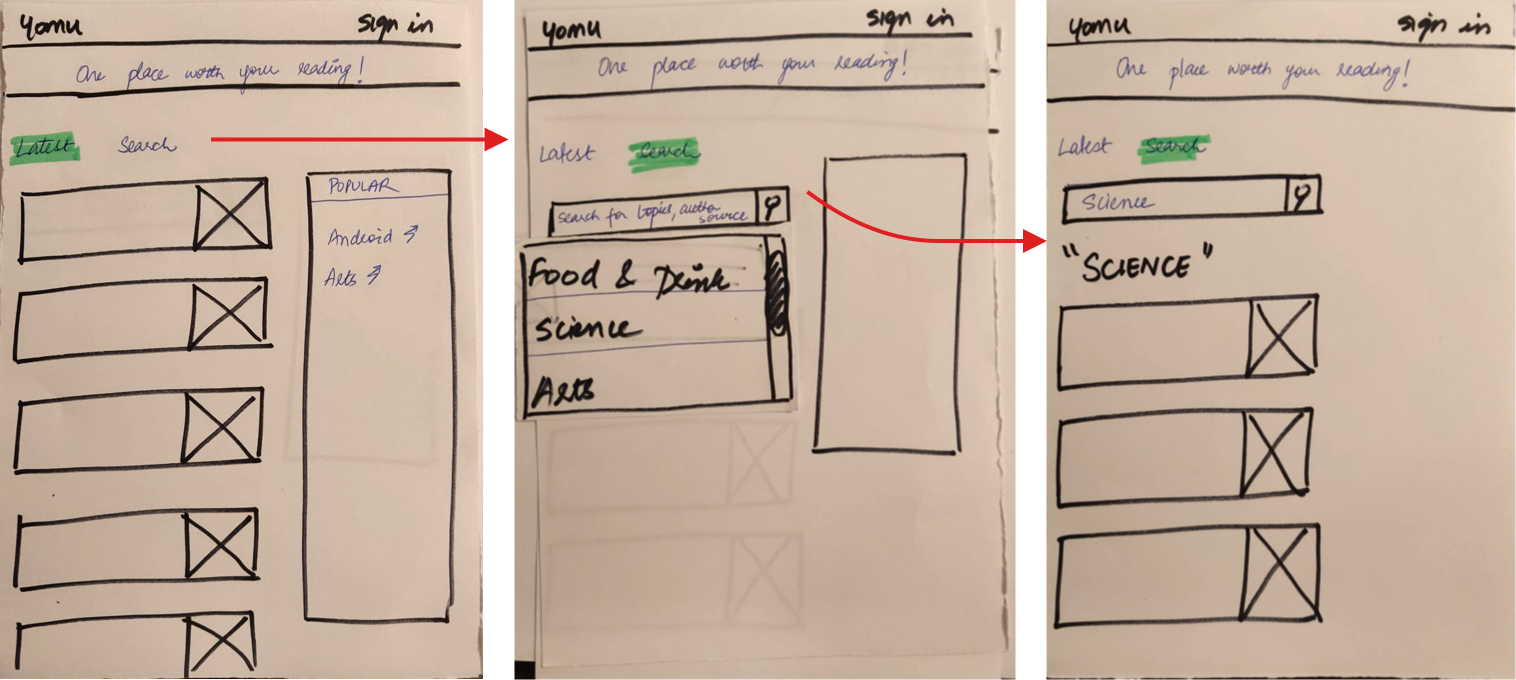 yomu sign in
One place worth your reading!
Latest Search
POPULAR
Android
Arts
yomu sign in
One place worth your reading!
Latest Search
search for topic, author
source
Food & Drink
Science
Arts
yomu sign in
One place worth your reading!
Latest Search
Science
"SCIENCE"